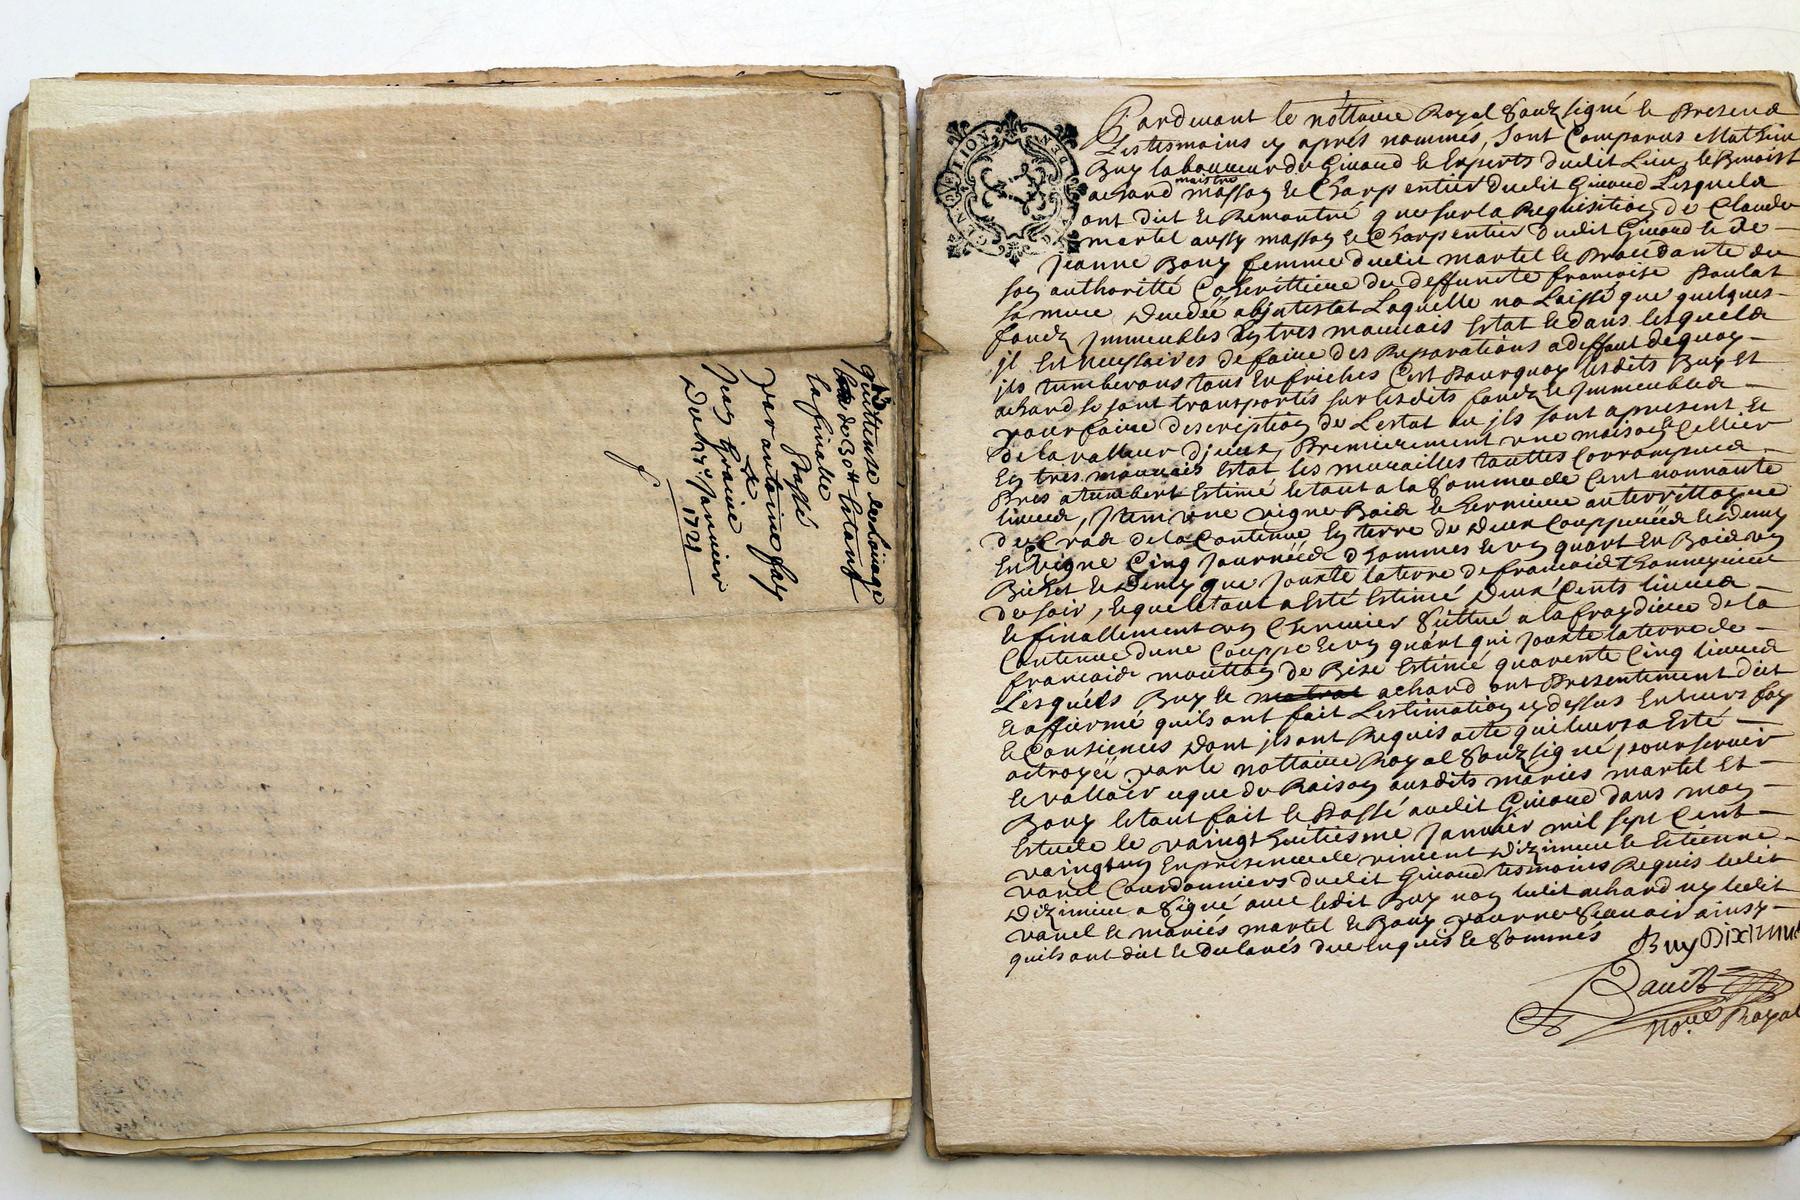 quittense de lainage
de 30# Estant
la finalle
passé
par antoine fay
&
Jean graine
Du 24e Janvier
1721
GEN. D. LION
Pardevant le nottaire Royal Soubz signé et Presend
Lestesmoins cy aprés nommés, sont Comparus Mathieu
Buy laboureur de Givaud et Experts dudit Lieu, et Benoist
maistre
achard masson et Charpentier dudit Givaud Lesqueld
ont dict et Remontré que sur la Requisition de Claude
martel aussy masson et Charpentier dudit Givaud et de
Jeanne Bouy femme dudit martel et Procedante de
son authoritté Coherittiere de deffuncte francoise Poulat
sa mere decedée abjntestat Laquelle na Laissé que quelques
fondz Jmmeubles en tres mauvais Estat et dans lesqueld
jl Est necessaires de faire des Reparations a deffaut dequoy
jls tumberons tous En friches C'est Pourquoy lesdits Buy et
achard se sont transportés sur lesdits fondz et Jmmeubled
pour faire description de Lestat ou jls sont apresent et
de la valleur djceux, Premierement une maison et Cellier
En tres mauvais Estat les murailles touttes Corrompued
Pres a tumbert Estimé le tout a la Somme de Cent nonnante
livred, Jtem une vigne Boid et hermiere au territtoyre
de Crad de la Contenue En terre de deux Couppeeéd et demy
En vigne Cinq Journeéd d'hommes et un quart En Boid un
Bichet et demy que Jouxte la terre de francoid
de soir, lequel tout a Esté Estimé deux Cents livred
et finallement un Chenevier Scittué a la fraydiere de la
Contenue d'une Couppe et un quart qui Jouxte la terre de
francoid moutton de Bize Estimé quarente Cinq livred
Lesquels Buy et achard ont Presentement dict
et affirmé quils ont fait Lestimation cy dessus En leurs foy
et Consiences dont jls ont Requis acte qui leurs a Esté
octroyéé par le nottaire Royal Soubz signé pour servir
et valloir ceque de Raison ausdits mariés martel Et
Bouy le tout fait et Passé audit Givaud dans mon
Estude le vaingt huitiesme Janvier mil sept Cent
vaingt un En presence de vincent dizimieu et Etienne
vanel Courdonniers dudit Givaud tesmoins Requis ledit
dizimieu a Signé avec ledit Buy non ledit achard ny ledit
vanel et mariés martel et Bouy pour ne Scavoir ainsy
quils ont dit et declarés de ce Enquis et Sommés
Buy Diximieu
nore Royal